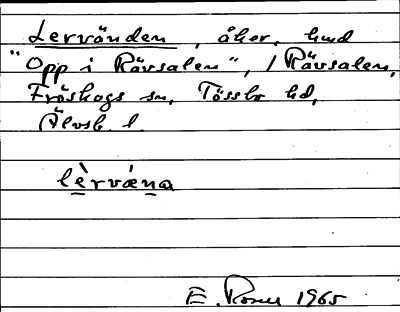 Lervånden, åker, hmd
"Opp i Rävsalen", / Rävsalen,
Fröskogs sn, Tössbo hd,
Älvsb. l.
lèrvǽna
E. Rosen 1965